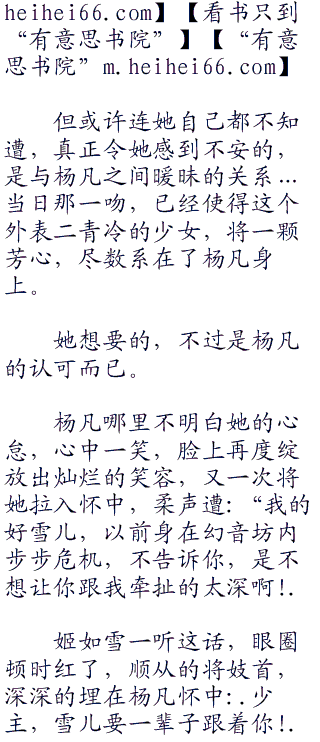 heihei66.com】【看书只到
“有意思书院”】【“有意
思书院”m.heihei66.com】
但或许连她自己都不知
遭，真正令她感到不安的，
是与杨凡之间暖昧的关系…
当日那一吻，已经使得这个
外表二青冷的少女，将一颗
芳心，尽数系在了杨凡身
上。
她想要的，不过是杨凡
的认可而已。
杨凡哪里不明白她的心
怠，心中一笑，脸上再度绽
放出灿烂的笑容，又一次将
她拉入怀中，柔声遭:“我的
好雪儿，以前身在幻音坊内
步步危机，不告诉你，是不
想让你跟我牵扯的太深啊!.
姬如雪一听这话，眼圈
顿时红了，顺从的将妓首，
深深的埋在杨凡怀中:.少
主，雪儿要一辈子跟着你!.